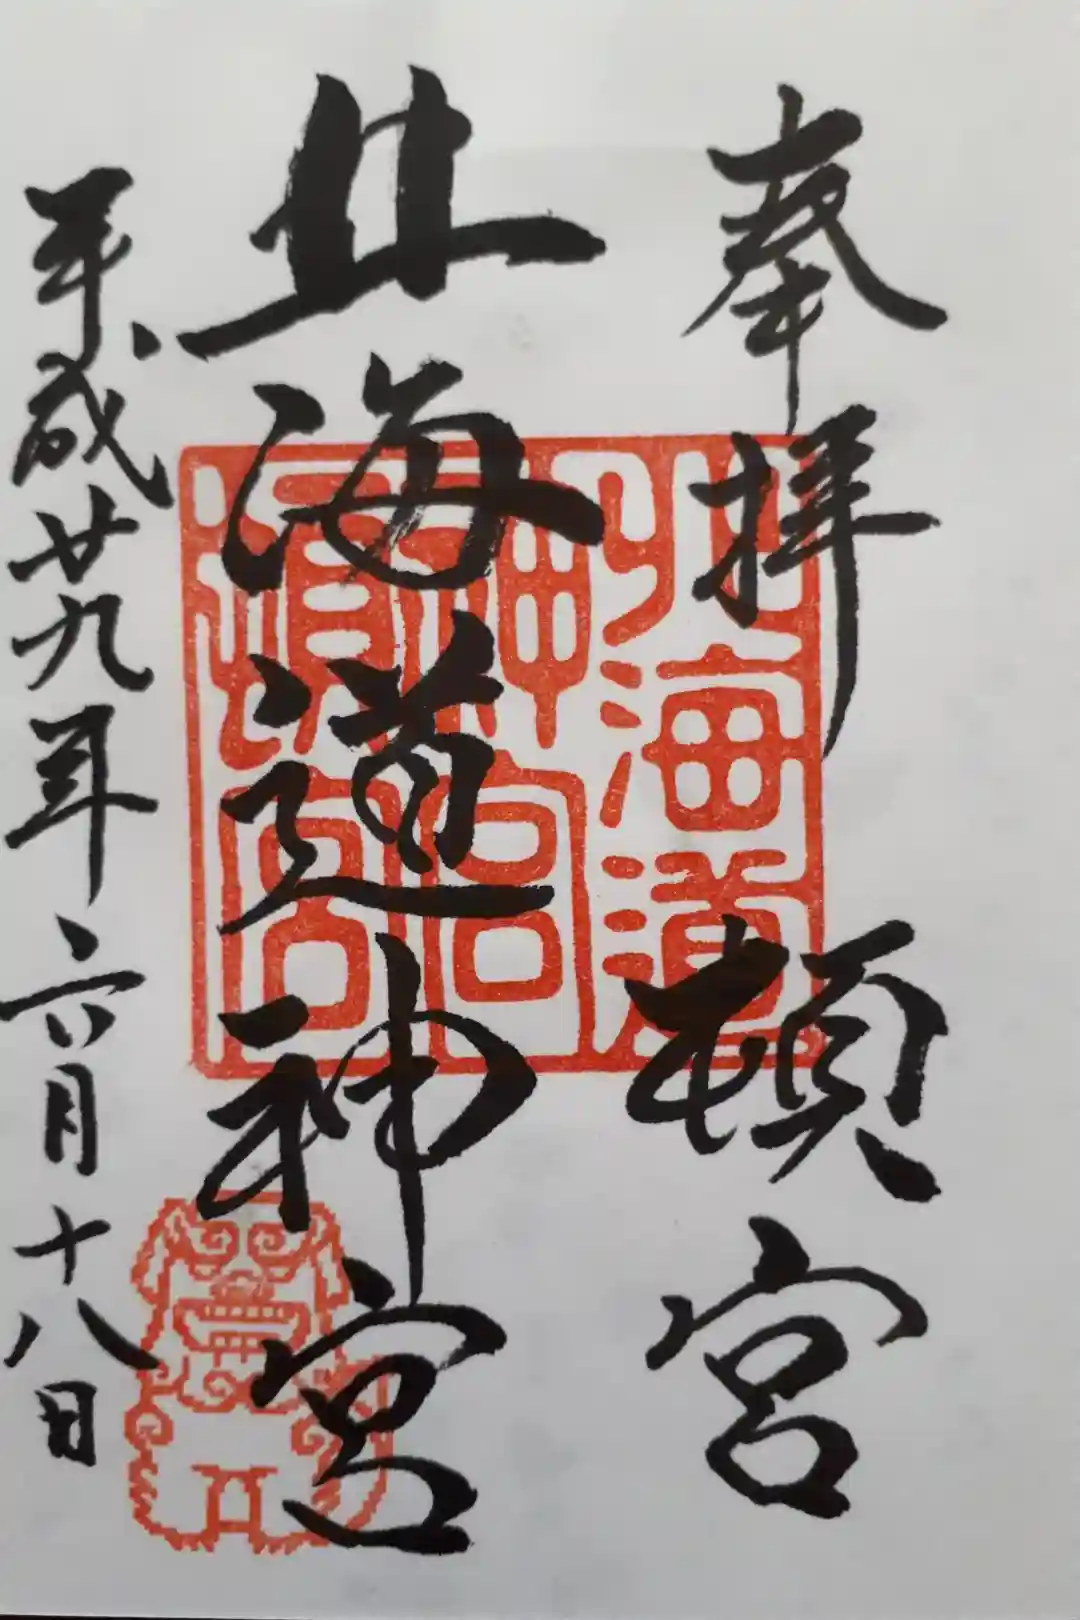 奉拝
頓宮
北海道神宮
平成廿九年六月十八日
北海道
神宮
頓宮